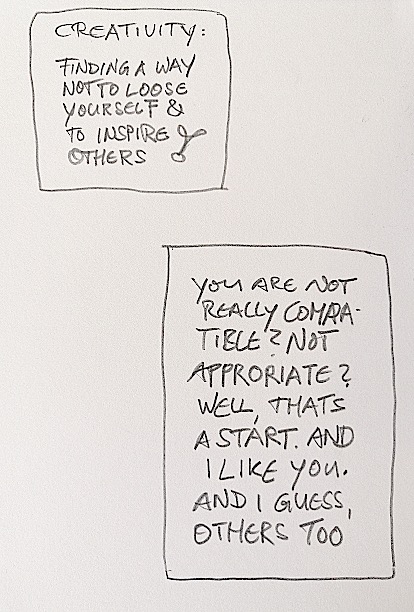 CREATIVITY:
FINDING A WAY
NOT TO LOOSE
YOURSELF &
TO INSPIRE
OTHERS
YOU ARE NOT
REALLY COMPA-
TIBLE? NOT
APPRORIATE?
WELL, THATS
A START. AND
I LIKE YOU.
AND I GUESS,
OTHERS TOO